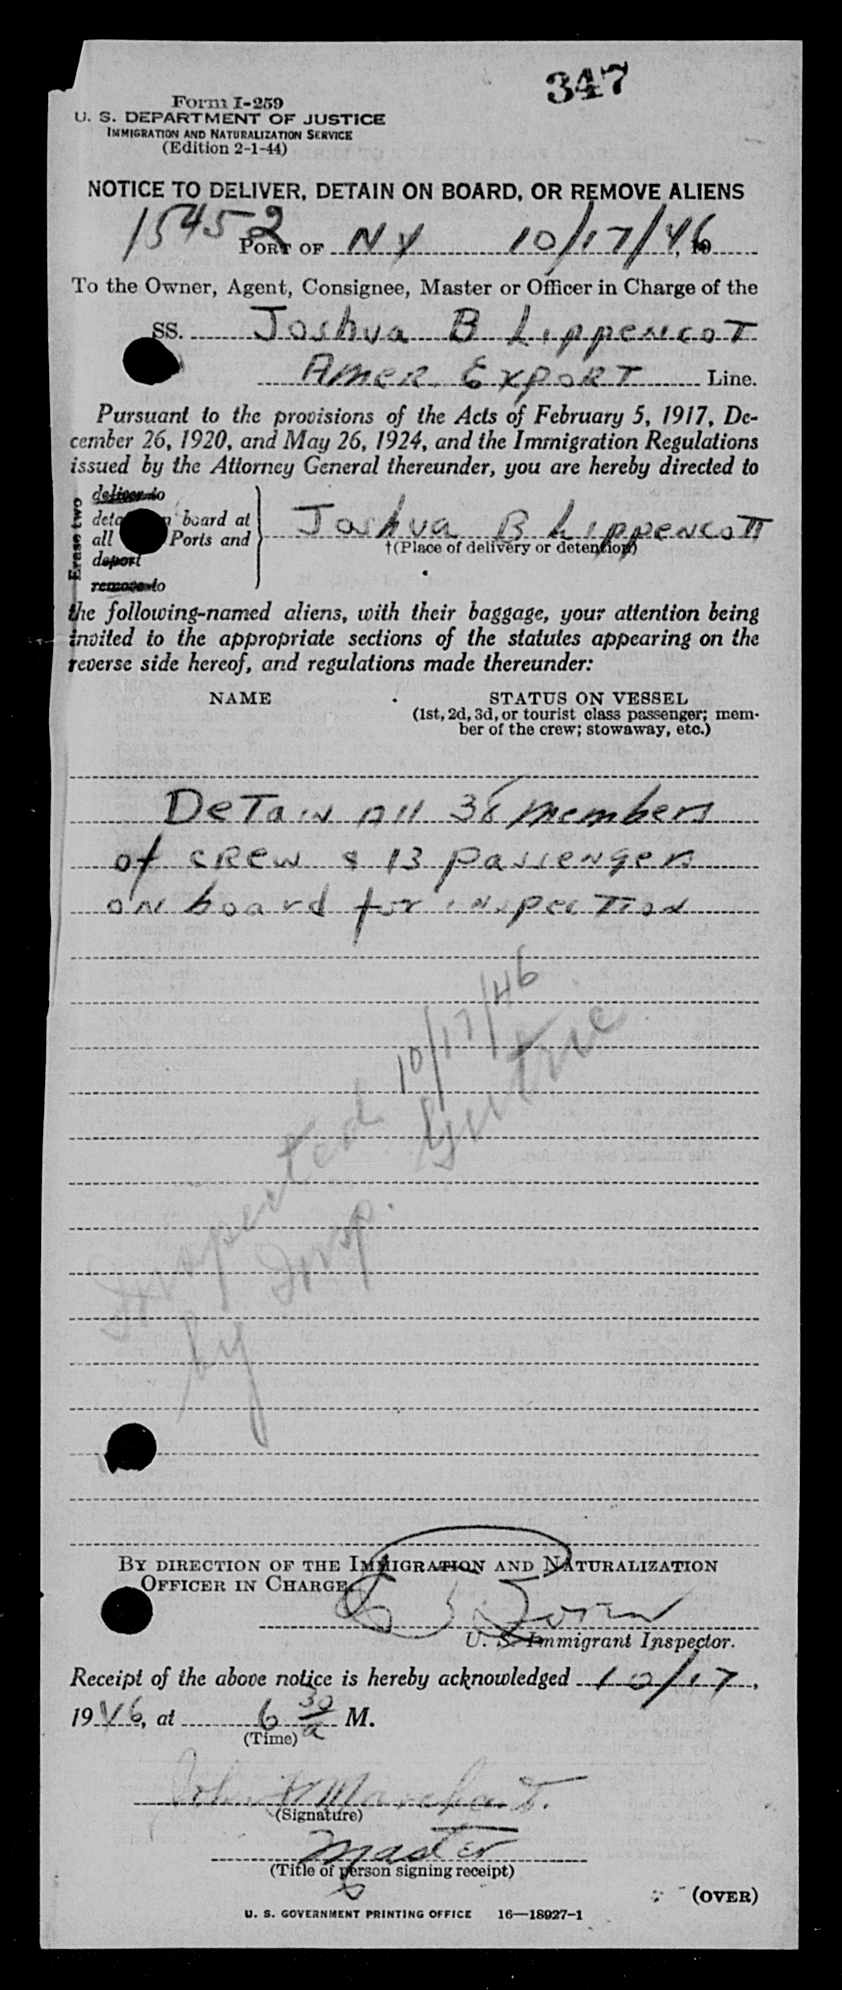 347
Form I-259
U. S. DEPARTMENT OF JUSTICE
IMMIGRATION AND NATURALIZATION SERVICE
(Edition 2-1-44)
NOTICE TO DELIVER, DETAIN ON BOARD, OR REMOVE ALIENS
15452
PORT OF NY 10/17/46, 19
To the Owner, Agent, Consignee, Master or Officer in Charge of the
SS. Joshua B Lippencot
Amer. Export Line.
Pursuant to the provisions of the Acts of February 5, 1917, De-
cember 26, 1920, and May 26, 1924, and the Immigration Regulations
issued by the Attorney General thereunder, you are hereby directed to
Erase two
deliver to
board at
all Ports and
deport
remove to
Joshua B Lippencott
†(Place of delivery or detention)
the following-named aliens, with their baggage, your attention being
invited to the appropriate sections of the statutes appearing on the
reverse side hereof, and regulations made thereunder:
NAME STATUS ON VESSEL
(1st, 2d, 3d, or tourist class passenger; mem-
ber of the crew; stowaway, etc.)
Detain All 38 members
of crew & 13 passengers
on board for inspection
Inspected 10/17/46
by Insp. Guthrie
BY DIRECTION OF THE IMMIGRATION AND NATURALIZATION
OFFICER IN CHARGE.
U. S. Immigrant Inspector.
Receipt of the above notice is hereby acknowledged 10/17,
1946, at 6 30/a M.
(Time)
John
(Signature)
Master
(Title of person signing receipt)
(OVER)
U. S. GOVERNMENT PRINTING OFFICE 16—18927-1